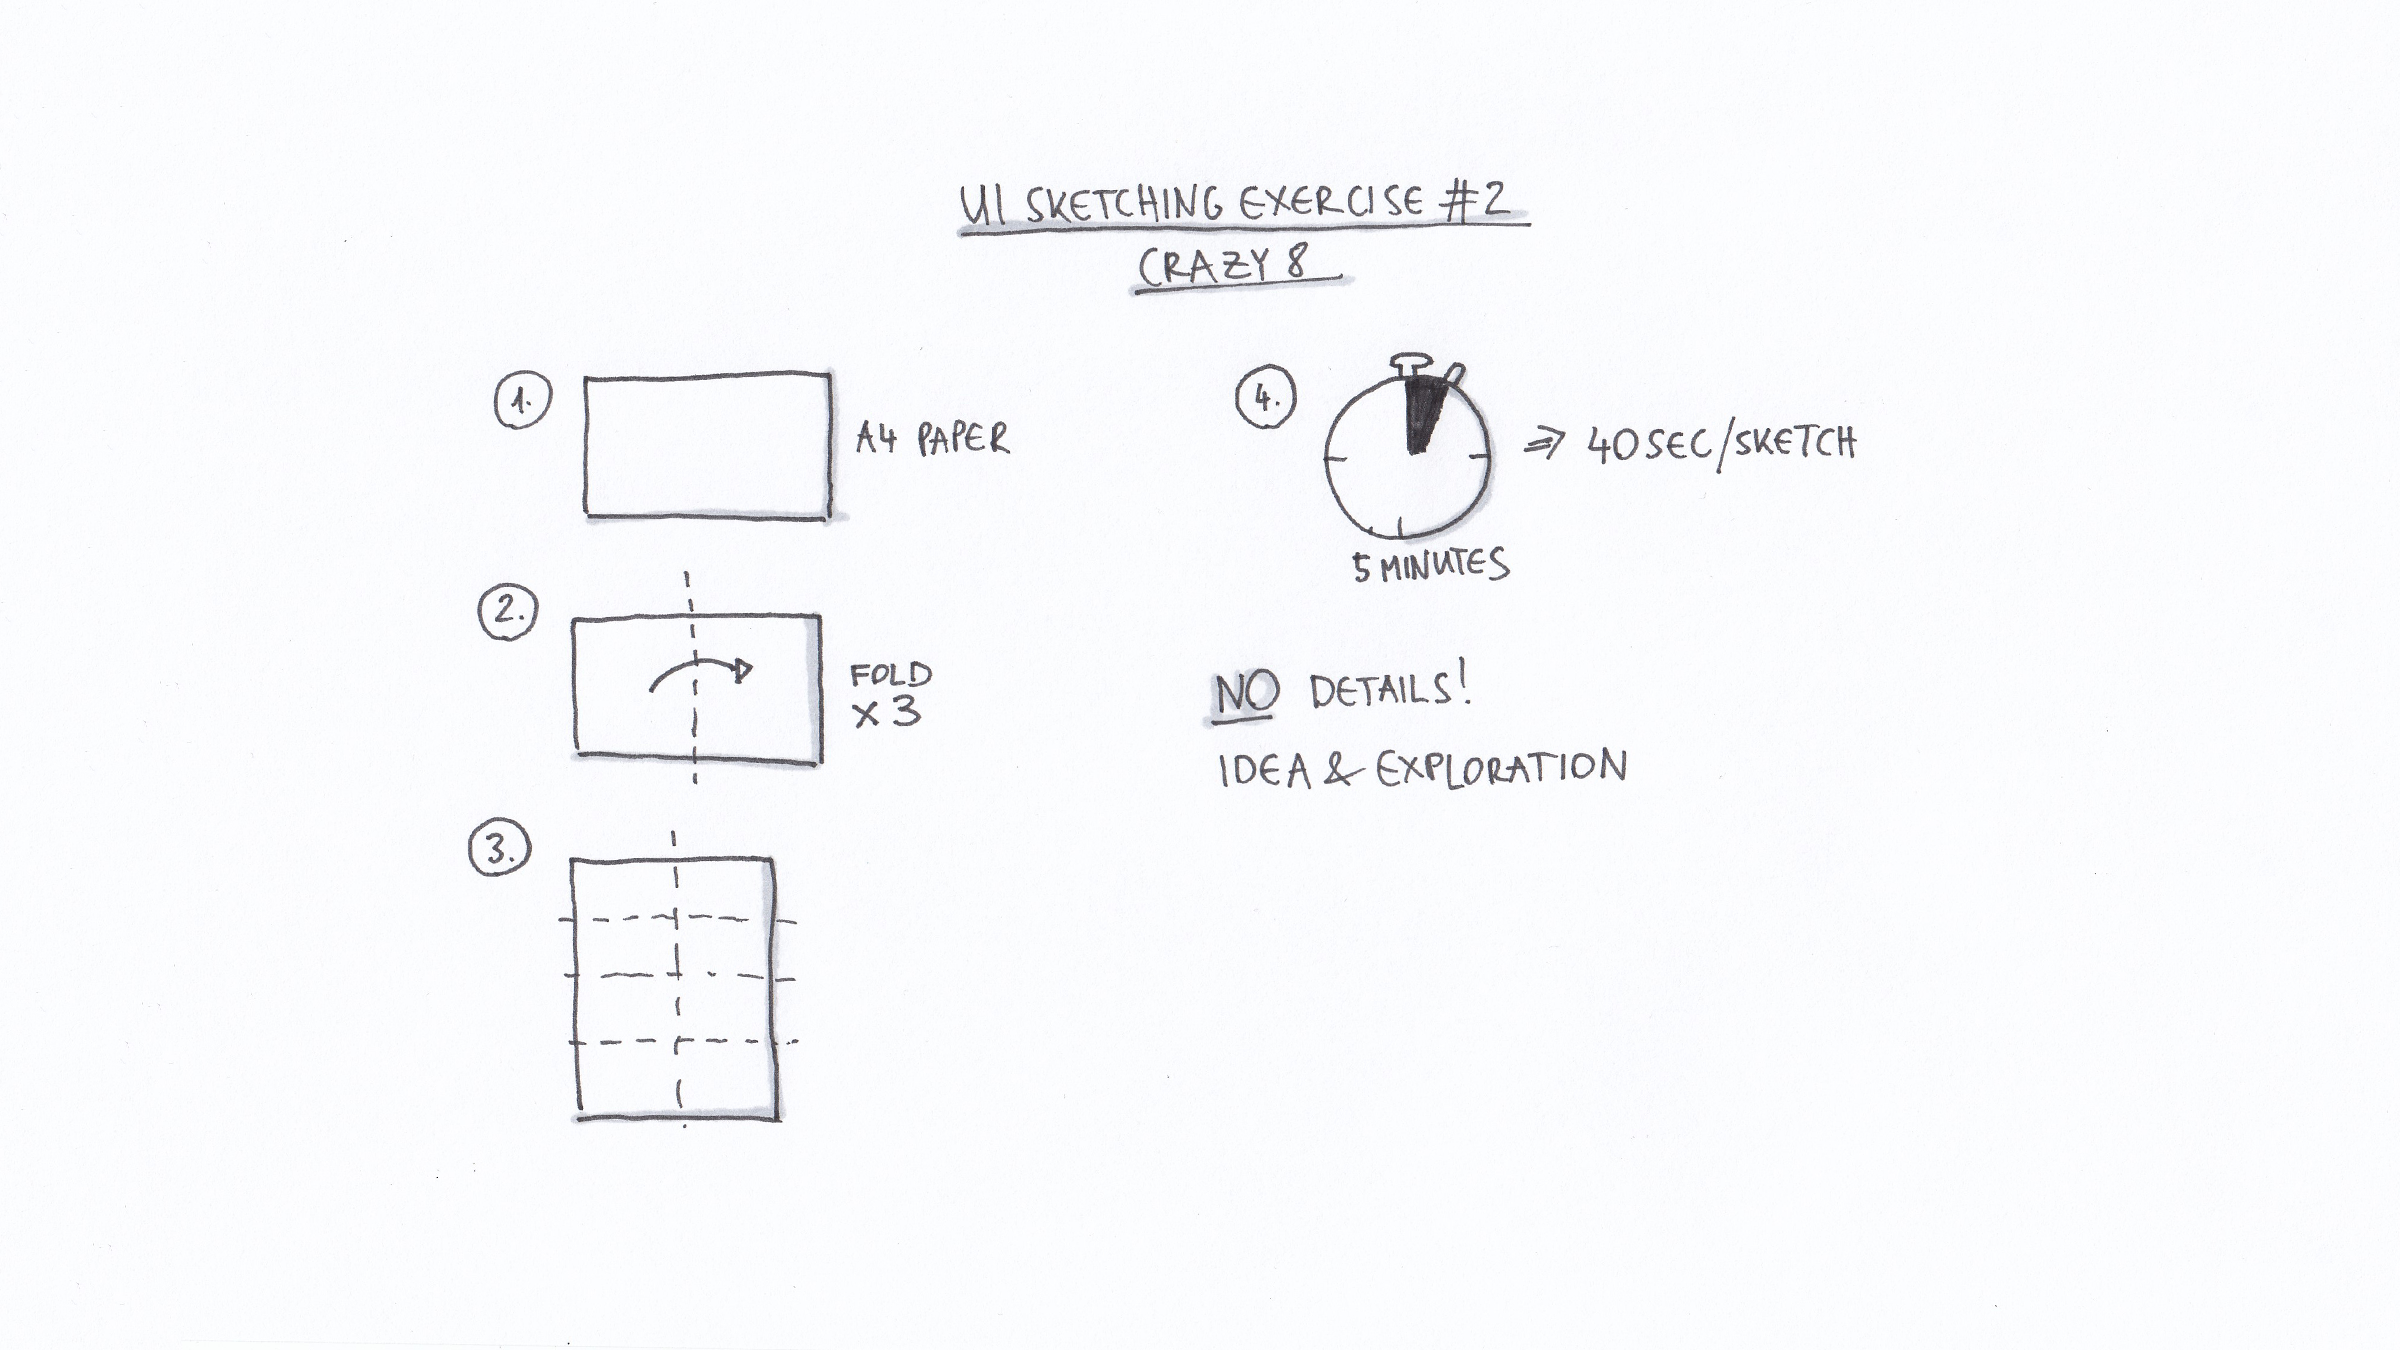 UI SKETCHING EXERCISE #2
CRAZY 8
1.
A4 PAPER
2.
FOLD
x 3
3.
4.
⇒ 40SEC/SKETCH
5 MINUTES
NO DETAILS!
IDEA & EXPLORATION